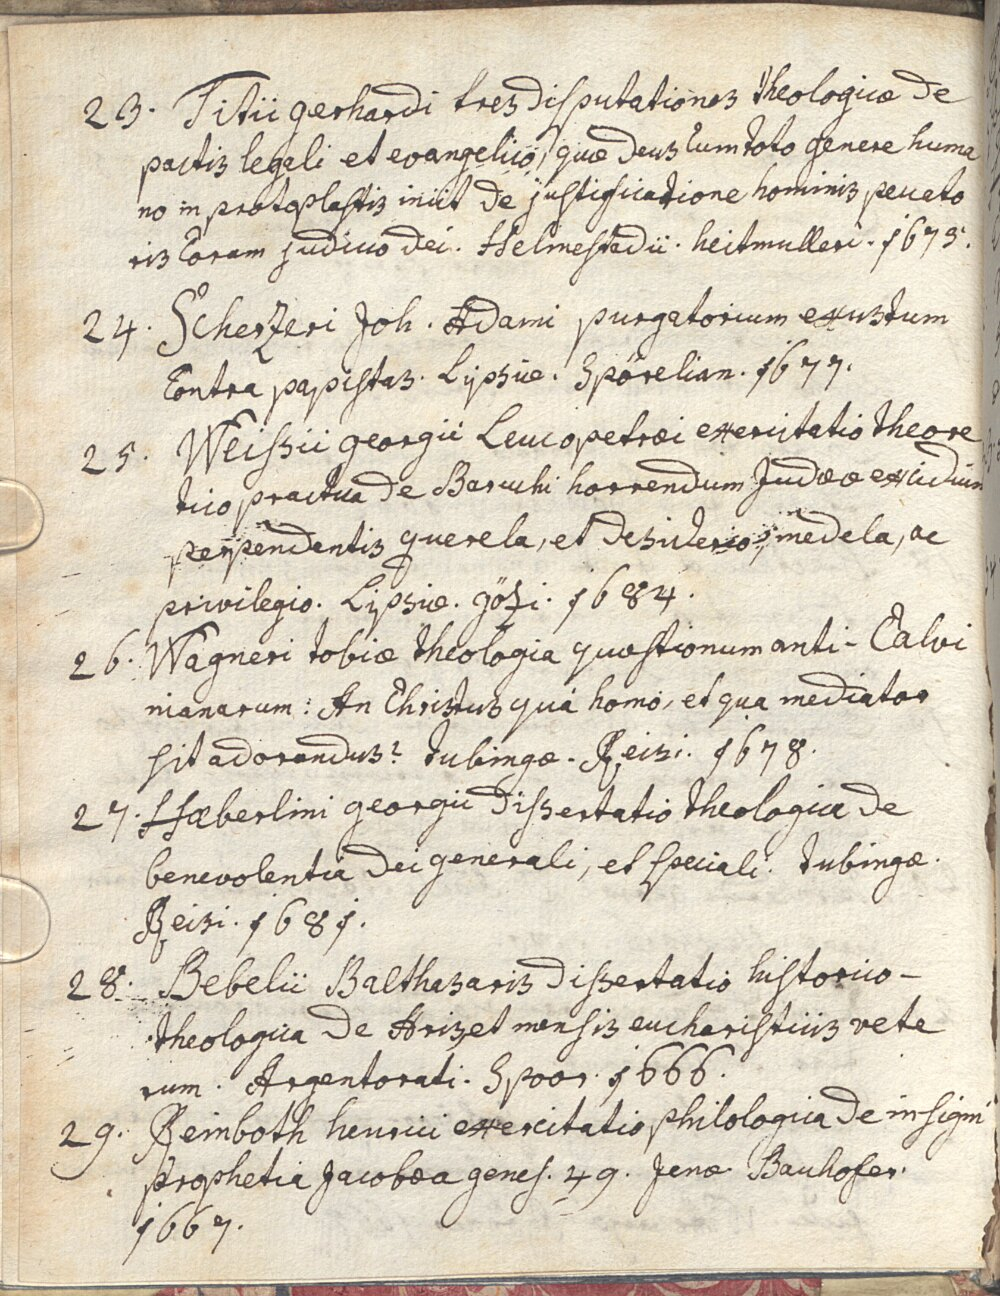 23. Titii gerhardi tres disputationes theologicæ de
pactis legali et evangelico, quæ deus cum toto genere huma
no in protoplastis iniit de justificatione hominis peccato
ris coram judicio dei. Helmestadii. heitmulleri. 1675.
24. Scherzeri Joh. Adami purgatorium exustum
contra papistas. Lipsiæ. Spörelian. 1677.
25. Weissii georgii Leucopetræi exercitatio theore
tico practica de Baruchi horrendum Judææ excidium
perpendentis querela, et desiderio, medela, ac
privilegio. Lipsiæ. gözi. 1684.
26. Wagneri tobiæ theologia quæstionum anti-Calvi
nianarum: An Christus quá homo, et qua mediator
sit adorandus? tubingæ. Reisi. 1678.
27. Hæberlini georgii dissertatio theologica de
benevolentia dei generali, et speciali. tubingæ.
Reisi. 1681.
28. Bebelii Balthasaris dissertatio historico-
theologica de Aris, et mensis eucharisticis vete
rum. Argentorati. Spoor. 1666.
29. Reinboth henrici exercitatio philologica de insigni
prophetia Jacobæa genes. 49. Jenæ Bauhofer.
1667.